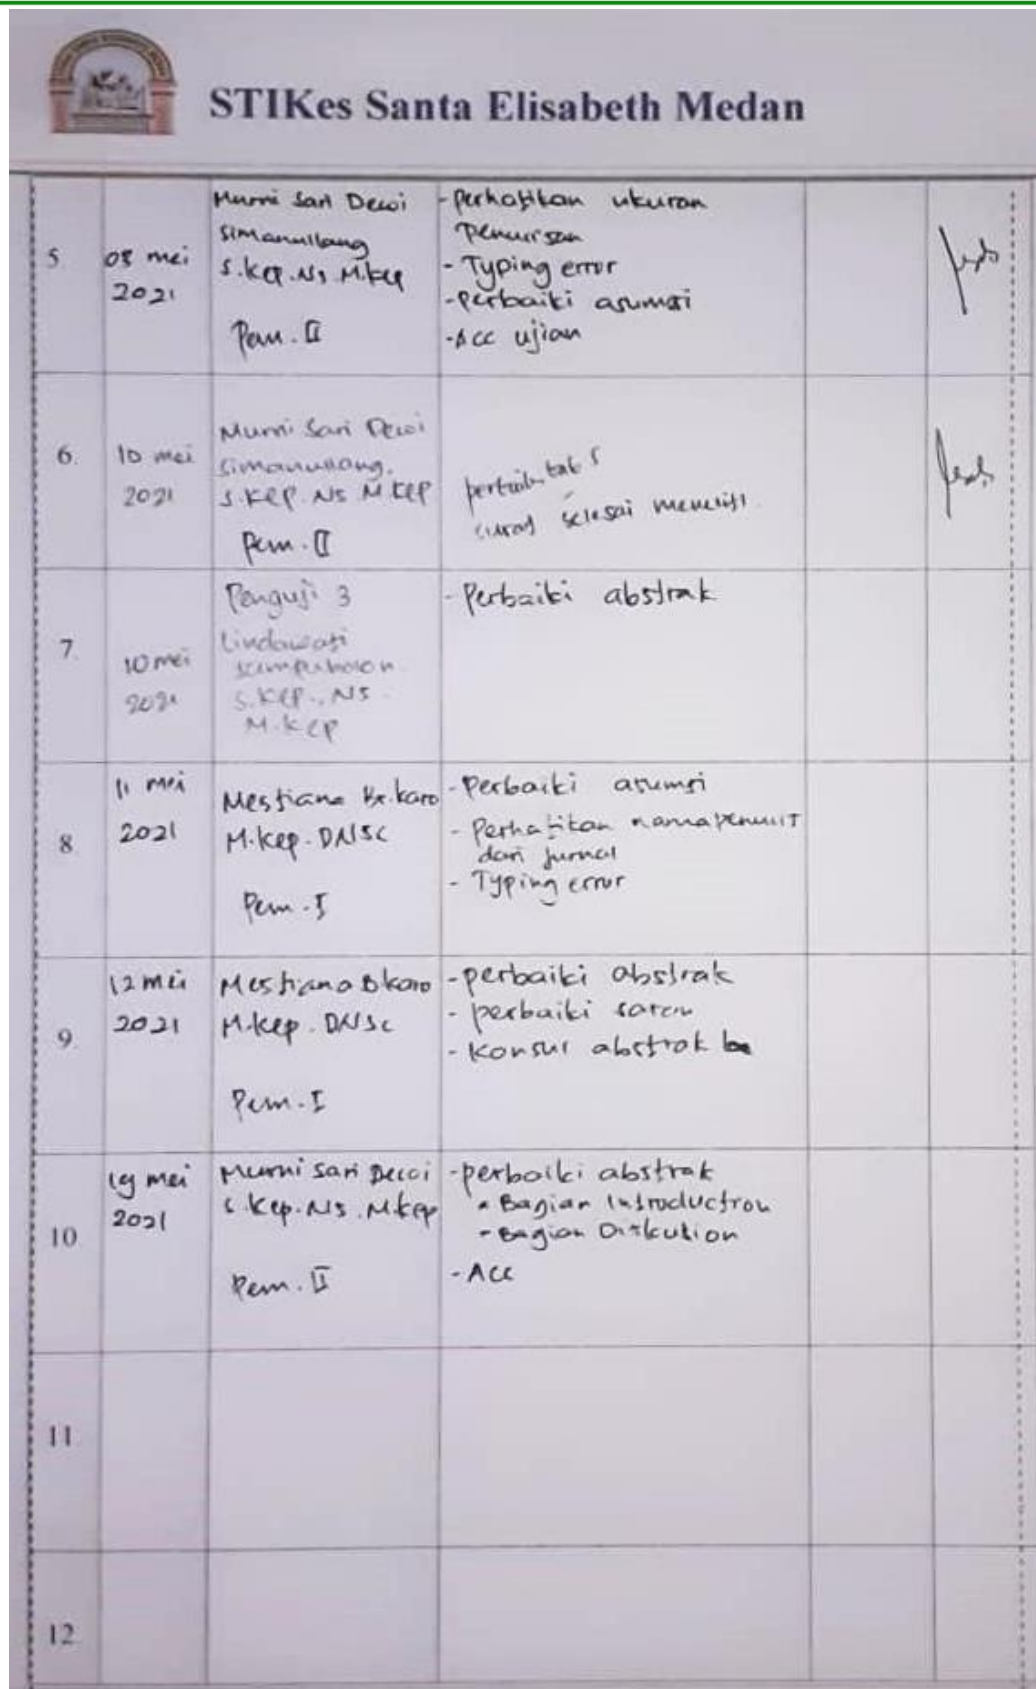 STIKes Santa Elisabeth Medan
5.
08 mei
2021
Murni Sari Dewi
Simanullang
S.Kep.Ns M.Kep
Pem. II
- Perhatikan ukuran
Penulisan
- Typing error
- perbaiki asumsi
- Acc ujian
6.
10 mei
2021
Murni Sari Dewi
Simanullang.
S.Kep.Ns M.Kep
Pem. II
selesai
7.
10 mei
2021
Penguji 3
Lindawati
Simpuholon
S.Kep., NS.
M.Kep
- Perbaiki abstrak
8.
11 mei
2021
Mestiana Br.karo
M.Kep. DNSC
Pem. I
- Perbaiki asumsi
- Perhatikan nama penulis
dari jurnal
- Typing error
9.
12 mei
2021
Mestiana B karo
M.Kep. DNSc
Pem. I
- perbaiki abstrak
- perbaiki saran
- Konsul abstrak
10
19 mei
2021
Murni Sari Dewi
S.Kep.Ns.M.Kep
Pem. II
- perbaiki abstrak
- Bagian Introduction
- Bagian Diskution
- Acc
11
12